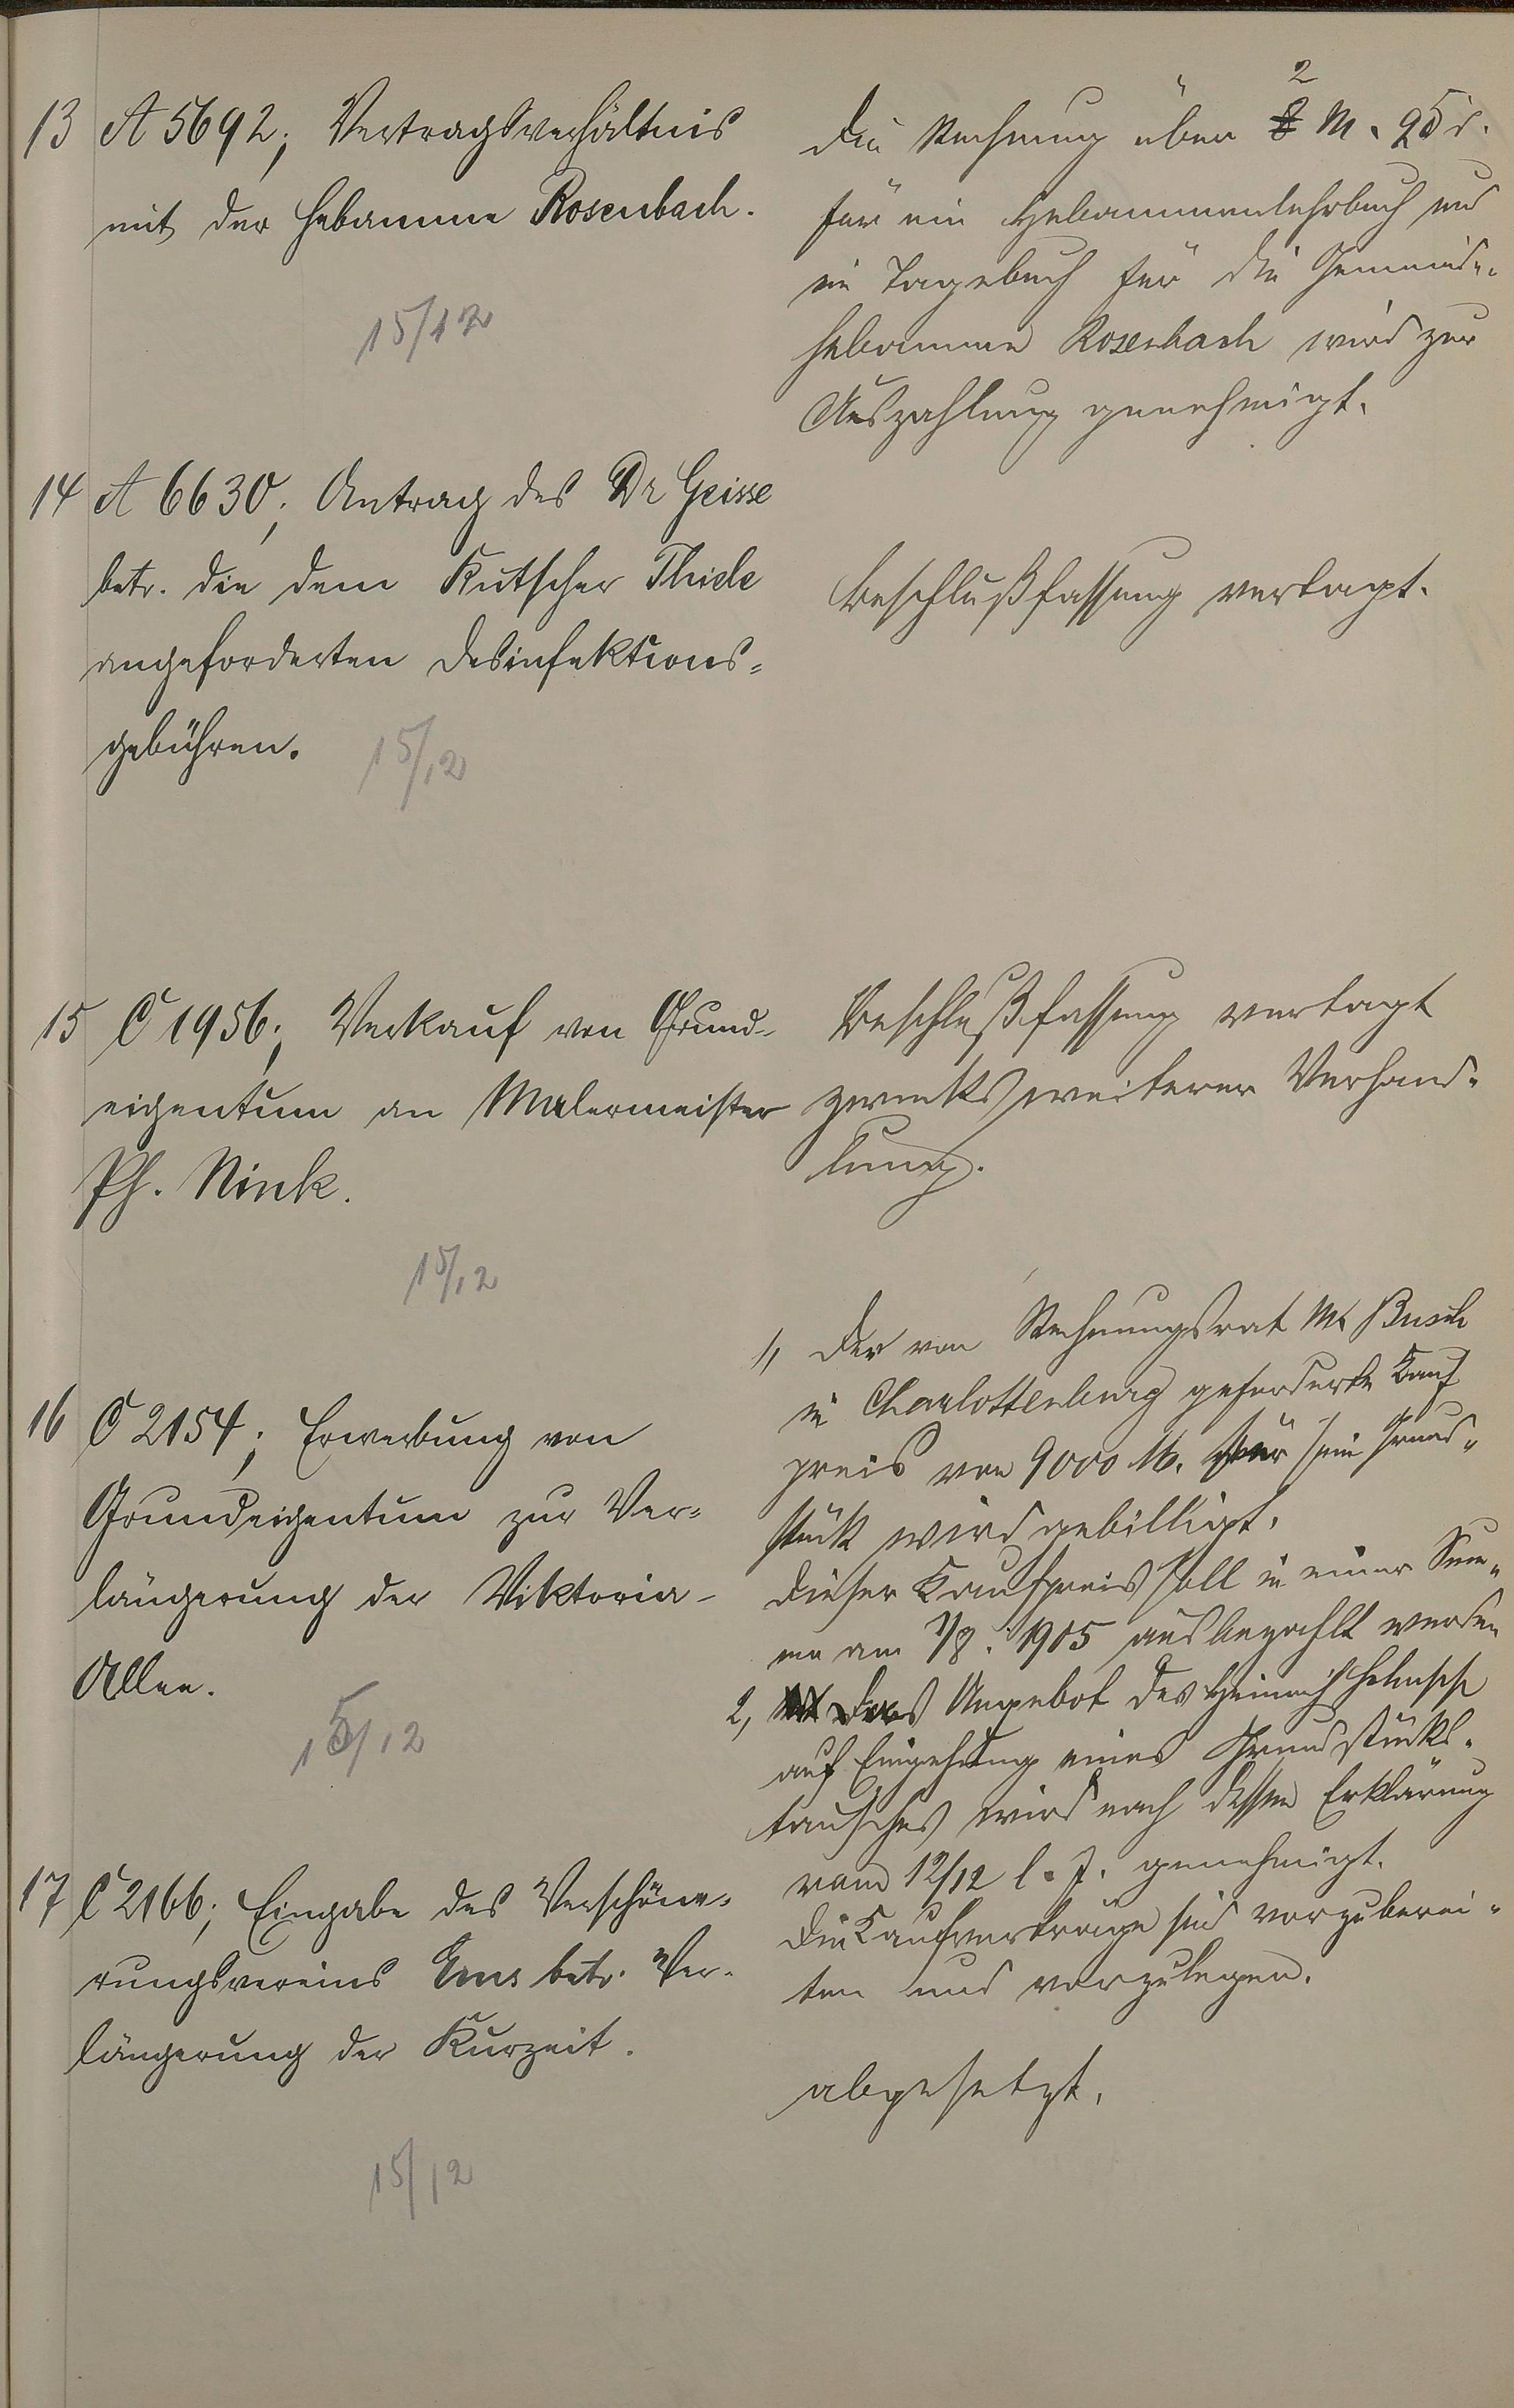 13 A 5692; Vertragsverhältnis
mit der Hebamme Rosenbach.
15/12
2
Die Rechnung über 8 M. 25 d.
für ein Hebammenlehrbuch und
ein Tagebuch für die Gemeinde-
hebamme Rosenbach wird zur
Auszahlung genehmigt.
14 A 6630; Antrag des Dr Geisse
betr. die dem Kutscher Thiele
angeforderten Desinfektions=
gebühren.
15/12
Beschlußfassung vertagt.
15 C 1956; Verkauf von Grund-
eigentum an Malermeister
Ph. Nink.
15/12
Beschlußfassung vertagt
zwecks weiterer Verhand-
lung.
16 C 2154; Erwerbung von
Grundeigentum zur Ver=
längerung der Viktoria-
Allee.
15/12
1, Der von Rechnungsrat M. Busch
in Charlottenburg geforderte Kauf
preis von 9000 M. für sein Grund-
stück wird gebilligt.
Dieser Kaufpreis soll in einer Sum-
me am 1/8. 1905 ausbezahlt werden
2, Das Angebot des Heinrich
auf Eingehung eines Grundstücks-
tausches wird nach dessen Erklärung
vom 12/12 l. J. genehmigt.
Die Kaufverträge sind vorzuberei-
ten und vorzulegen.
17 C 2166; Eingabe des Verschöne-
rungsvereins Ems betr. Ver-
längerung der Kurzeit.
15/12
abgesetzt.